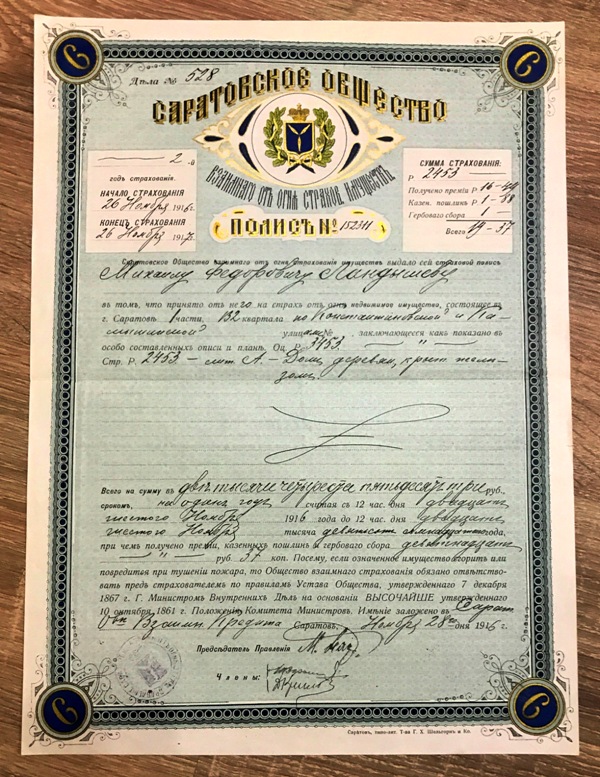 Дѣла № 528
САРАТОВСКОЕ ОБЩЕСТВО
ВЗАИМНАГО ОТЪ ОГНЯ СТРАХОВ. ИМУЩЕСТВЪ
ПОЛИСЪ № 152311
2-й
годъ страхованія.
НАЧАЛО СТРАХОВАНІЯ
26 Ноября 1916г.
КОНЕЦЪ СТРАХОВАНІЯ
26 Ноября 1917г.
СУММА СТРАХОВАНІЯ:
Р. 2453
Получено преміи Р 16-49
Казен. пошлинъ Р 1-88
Гербоваго сбора 1 —
Всего 19-37
Саратовское Общество взаимнаго отъ огня страхованія имуществъ выдало сей страховой полисъ
Михаилу Федоровичу Ландышеву
въ томъ, что принято отъ него на страхъ отъ огня недвижимое имущество, состоящее въ
г. Саратовѣ 1 части, 132 квартала по Константиновской и Ка-
мышинской улицамъ № , заключающееся какъ показано въ
особо составленныхъ описи и планѣ. Оц. Р. 3753
Стр. Р. 2453 — лит. А. — Домъ, деревян, крыт. желѣ-
зомъ.
Всего на сумму въ двѣ тысячи четыреста пятьдесятъ три руб.,
срокомъ, на одинъ годъ считая съ 12 час. дня двадцать
шестого Ноября 1916 года до 12 час. дня двадцать
шестого Ноября тысяча девятьсотъ семнадцатаго года,
при чемъ получено преміи, казенныхъ пошлинъ и гербоваго сбора девятнадцать
руб. 37 коп. Посему, если означенное имущество сгоритъ или
повредится при тушеніи пожара, то Общество взаимнаго страхованія обязано отвѣтство-
вать предъ страхователемъ по правиламъ Устава Общества, утвержденнаго 7 декабря
1867 г. Г. Министромъ Внутреннихъ Дѣлъ на основаніи ВЫСОЧАЙШЕ утвержденнаго
10 октября 1861 г. Положенія Комитета Министровъ. Имѣніе заложено въ Сарат.
О-вѣ Взаимн. Кредита Саратовъ, Ноября 28го дня 1916 г.
Предсѣдатель Правленія
Члены:
Саратовъ, типо-лит. Т-ва Г. Х. Шельгорнъ и Ко.
6
6
6
6